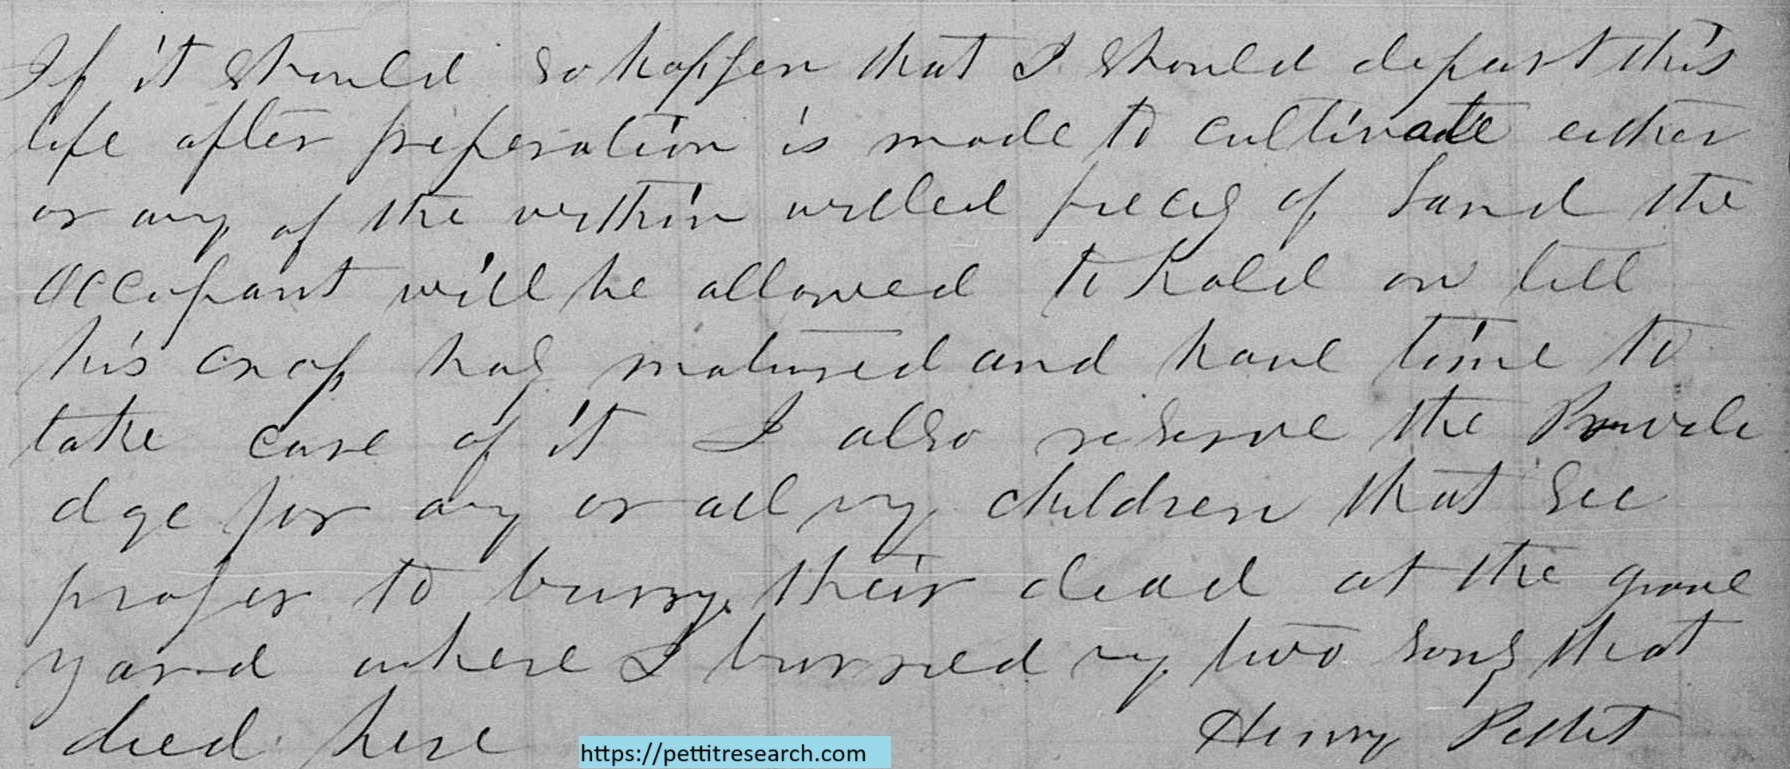 If it should so happen that I should depart this
life after preperation is made to cultivate either
or any of the within willed pieces of Land the
occupant will be allowed to hold on till
his crop has matured and have time to
take care of it I also reserve the Privele
dge for any or all my children that see
proper to burry their dead at the grave
yard where I burried my two sons that
died here Henry Pettet
https://pettitresearch.com